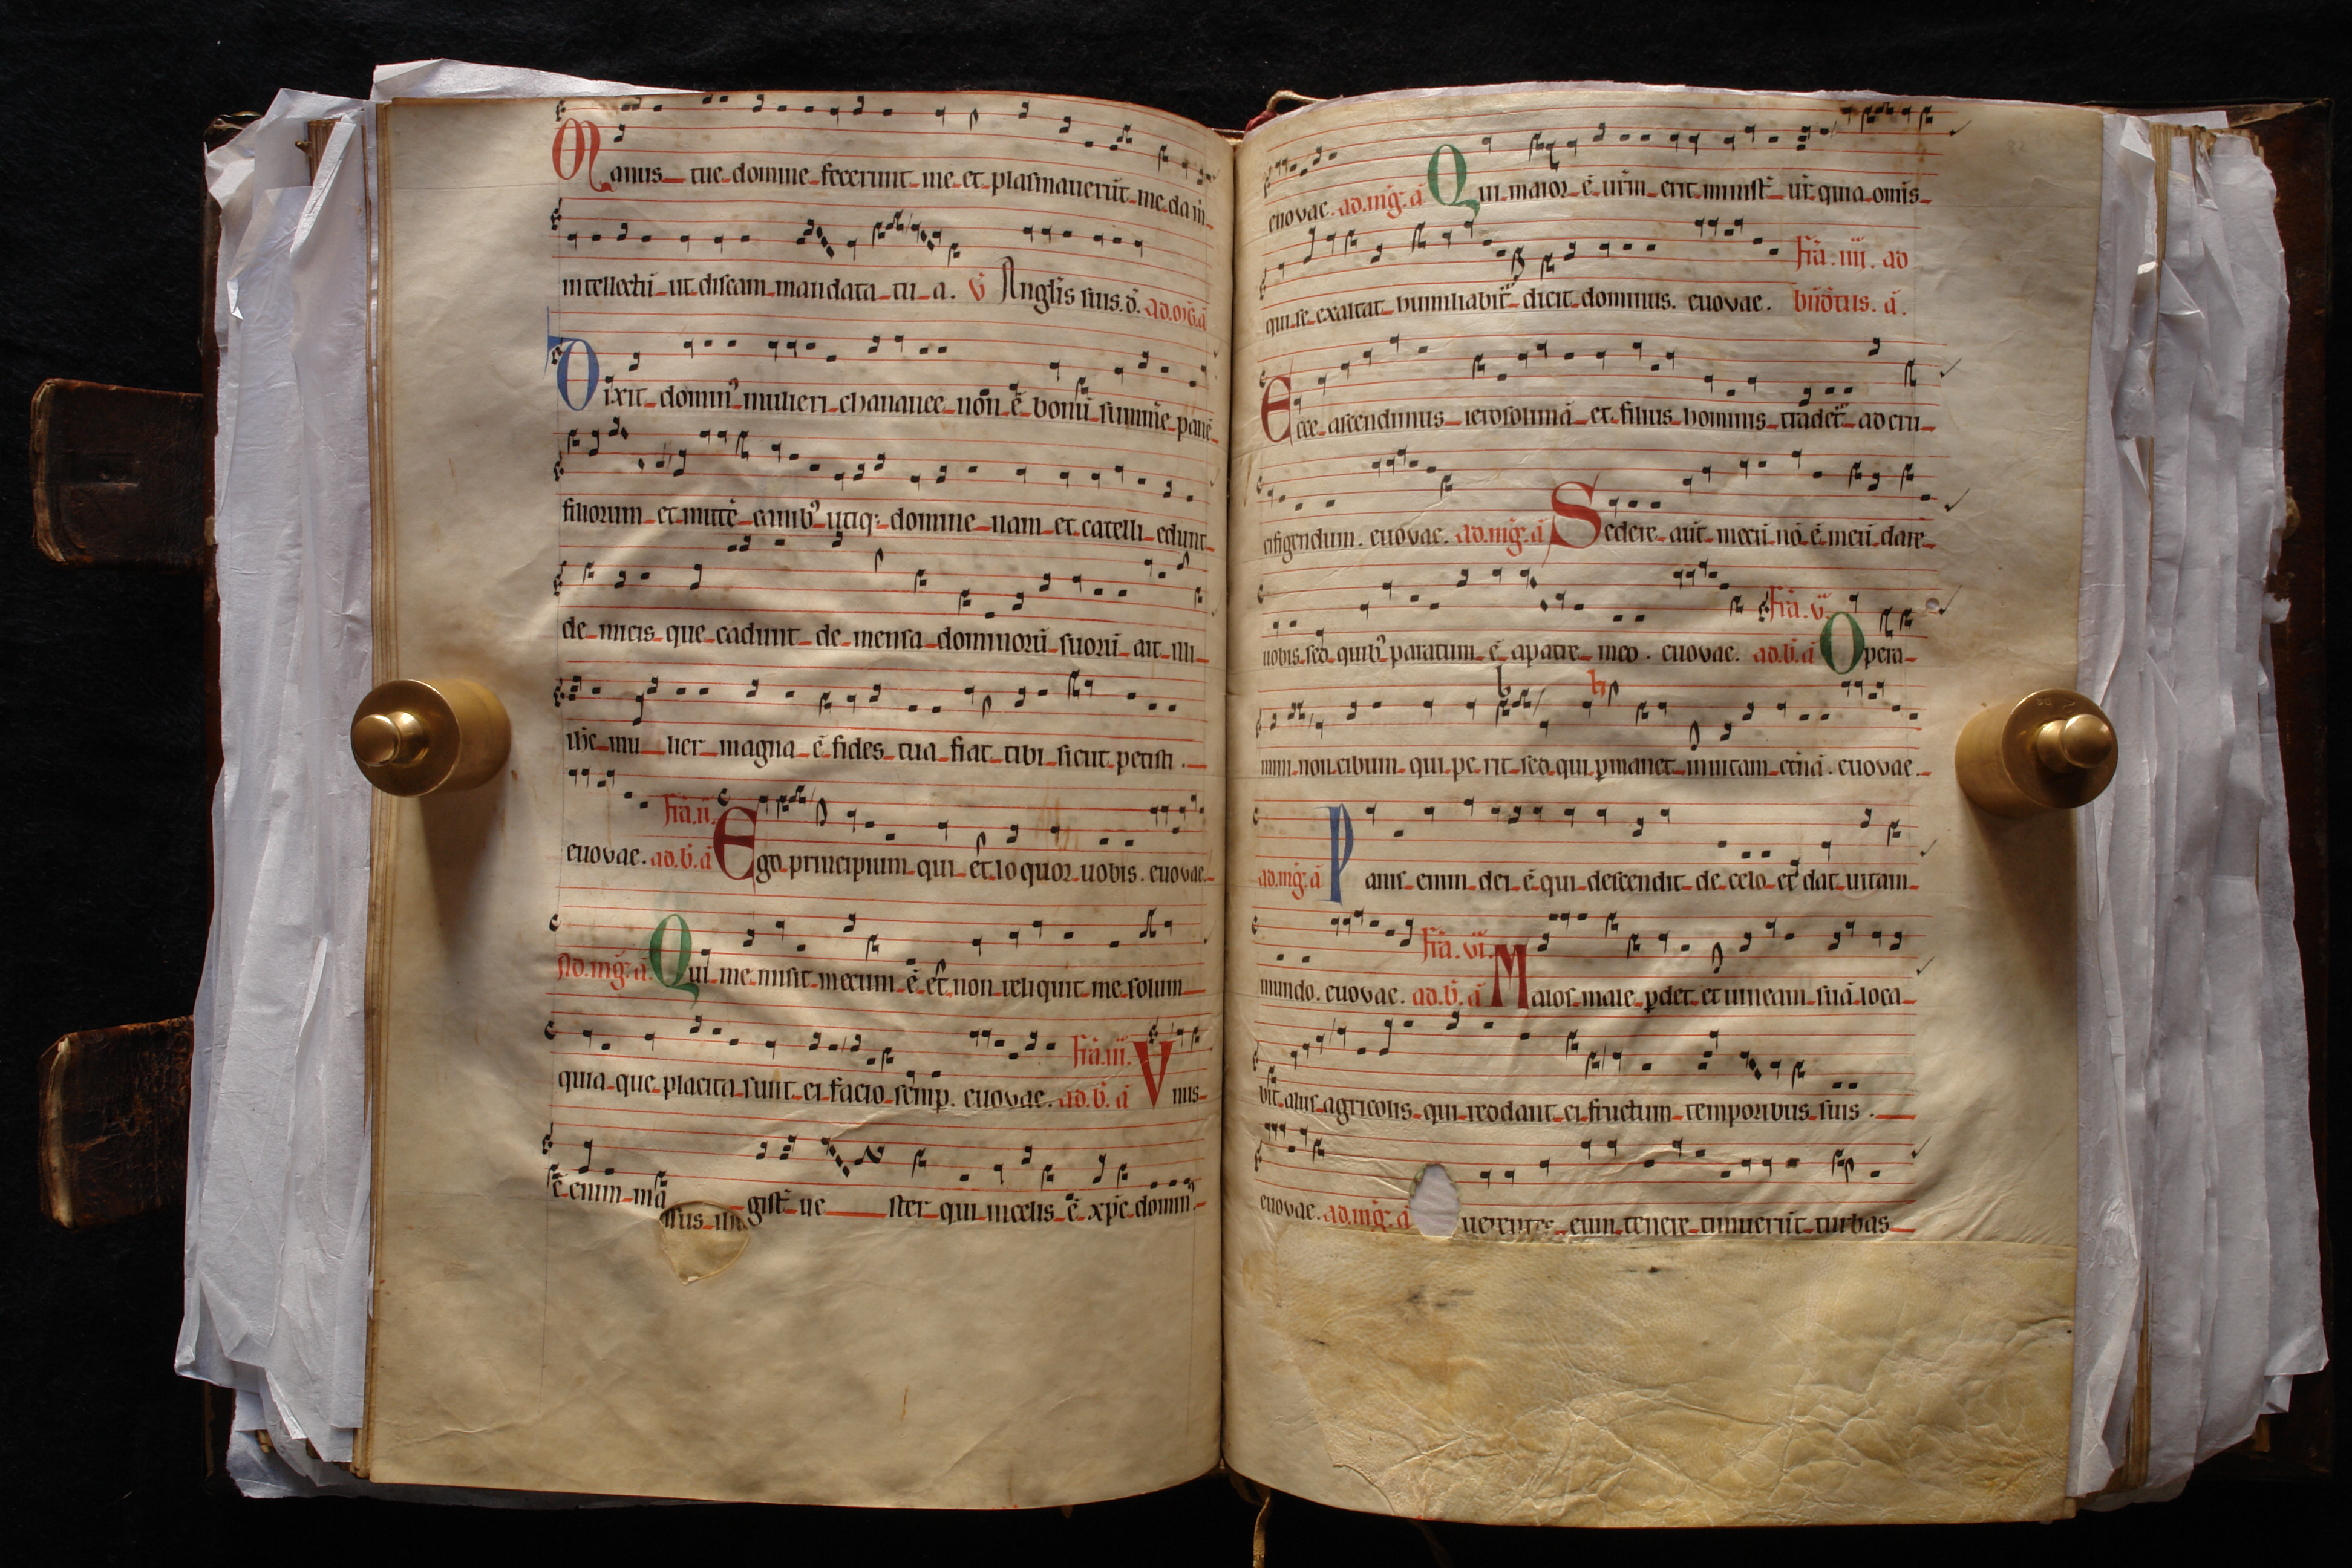 Manus tue domine fecerunt me et plasmauerūt me da m̄
intellectū ut discam mandata tu a. v̄ Angl̄is suis. d̄. ad. 
Dixit domin⁹ mulieri chananee nōn ē bonū sumere panē
filiorum et mittē canib⁹ utiq; domine nam et catelli edunt
de micis que cadunt de mensa dominorū suorū ait illi
ih̄c mu lier magna ē fides tua fiat tibi sicut petisti.
euovae. fīa. ii. ad. b̄. ā Ego principium qui et loquor uobis. euovae.
Ad. mḡ. ā. Qui me misit mecum ē et non reliquit me solum
quia que placita sunt ei facio semp. euovae. fīa. iii. ad. b̄. ā Vnus
ē enim mā gist̄ ue ster qui in celis ē xp̄c domin⁹
euovae. ad. mḡ. ā Qui maior ē ur̄m erit minist̄ ur̄ quia om̄is
qui se exaltat humiliabit̄ dicit dominus. euovae. fīa. iiii. ad
bn̄dc̄tus. ā.
Ecce ascendimus ierosolimā et filius hominis tradet̄ ad cru
cifigendum. euovae. ad. mḡ. ā Sedere aūt mecū nō ē meū dare
uobis sed quib⁹ paratum ē a patre meo. euovae. fīa. v. ad. b̄. ā Opera
mini non cibum qui pe rit sed qui pmanet in uitam etn̄ā. euovae.
ad. mḡ. ā Panis enim dei ē qui descendit de celo et dat uitam
mundo. euovae. fīa. vi. ad. b̄. ā Malos male pdet et uineam suā loca
bit aliis agricolis qui reddant ei fructum temporibus suis.
euovae. ad. mḡ. ā uerentes eum tenere timuerūt turbas